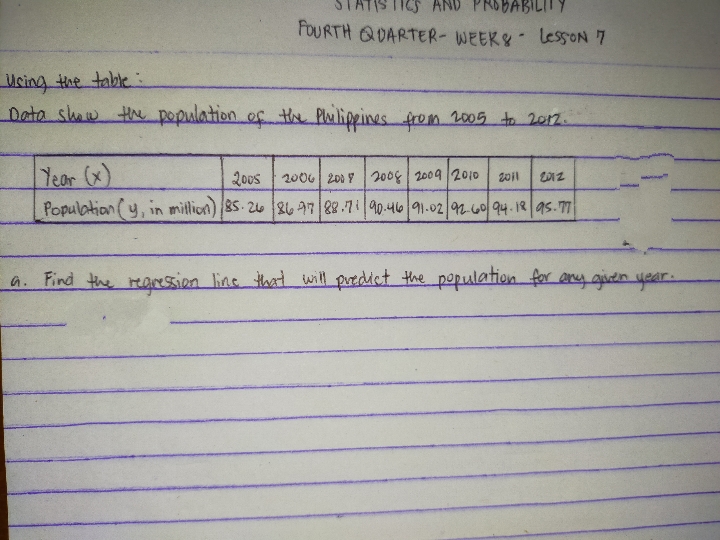 STATISTICS AND PROBABILITY
FOURTH QUARTER - WEEK 8 - Lesson 7
Using the table:
Data show the population of the Philippines from 2005 to 2012.
Year (x) 2005 2006 2007 2008 2009 2010 2011 2012
Population (y, in million) 85.26 86.97 88.71 90.46 91.02 92.60 94.18 95.77
a. Find the regression line that will predict the population for any given year.